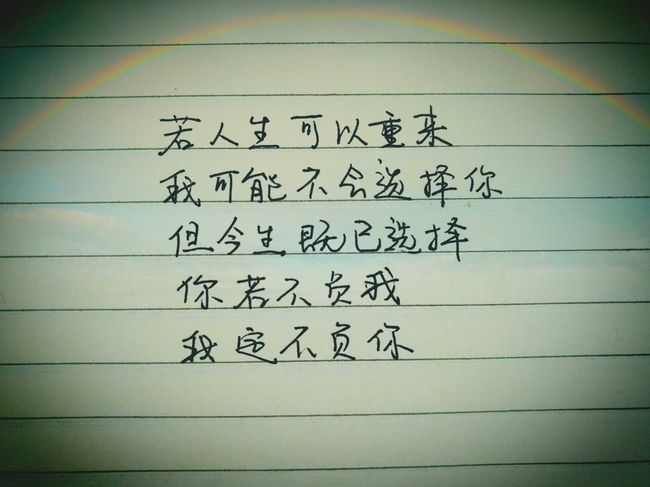 若人生可以重来
我可能不会选择你
但今生既已选择
你若不负我
我定不负你